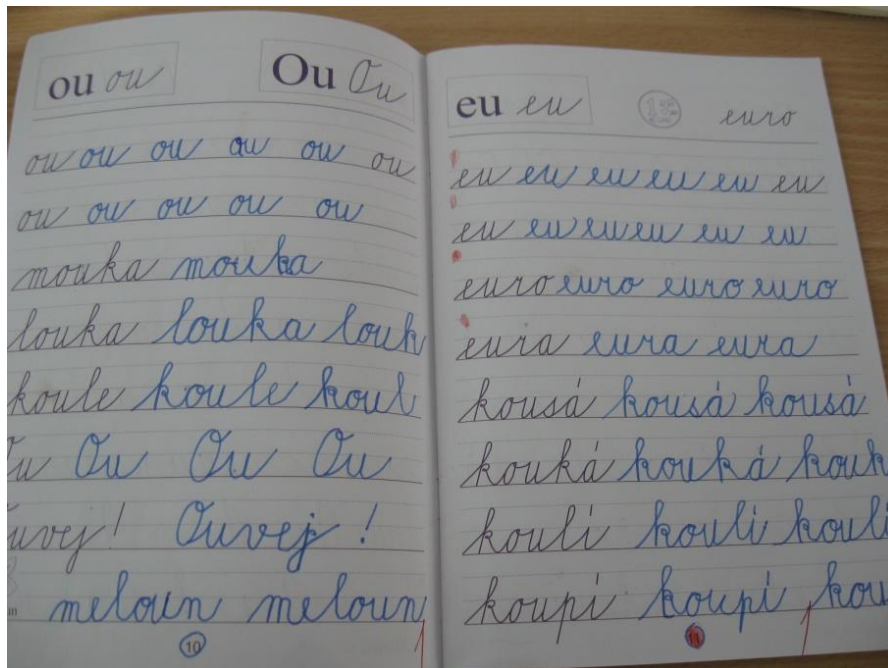 ou ou Ou Ou
ou ou ou ou ou ou
ou ou ou ou ou
mouka mouka
louka louka louk
koule koule koul
Ou Ou Ou
Ouvej!
meloun meloun
10
eu eu euro
eu eu eu eu eu eu
eu eu eu eu eu eu
euro euro euro euro
eura eura eura
kousá kousá kousá
kouká kouká kouk
koulí koulí koulí
koupí koupí kou
11